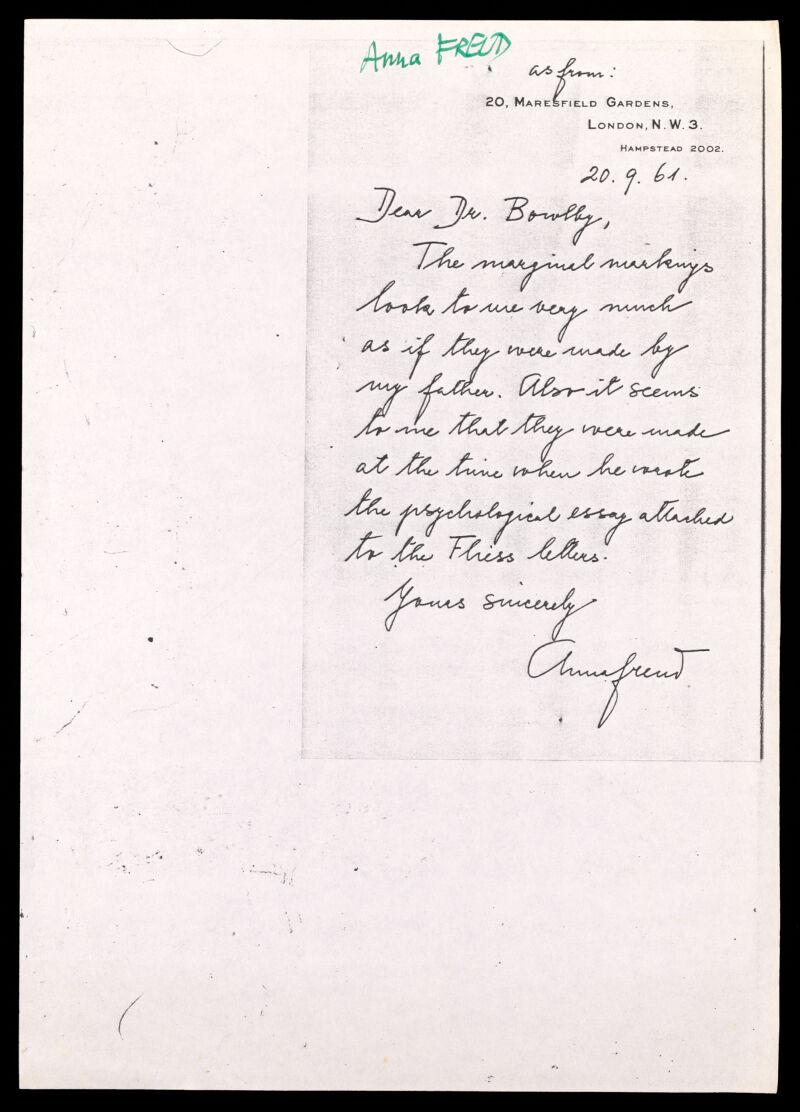 Anna FREUD
as from:
20, MARESFIELD GARDENS,
LONDON, N.W. 3.
HAMPSTEAD 2002.
20. 9. 61.
Dear Dr. Bowlby,
The marginal markings
look to me very much
as if they were made by
my father. Also it seems
to me that they were made
at the time when he wrote
the psychological essay attached
to the Fliess letters.
Yours sincerely
Anna Freud